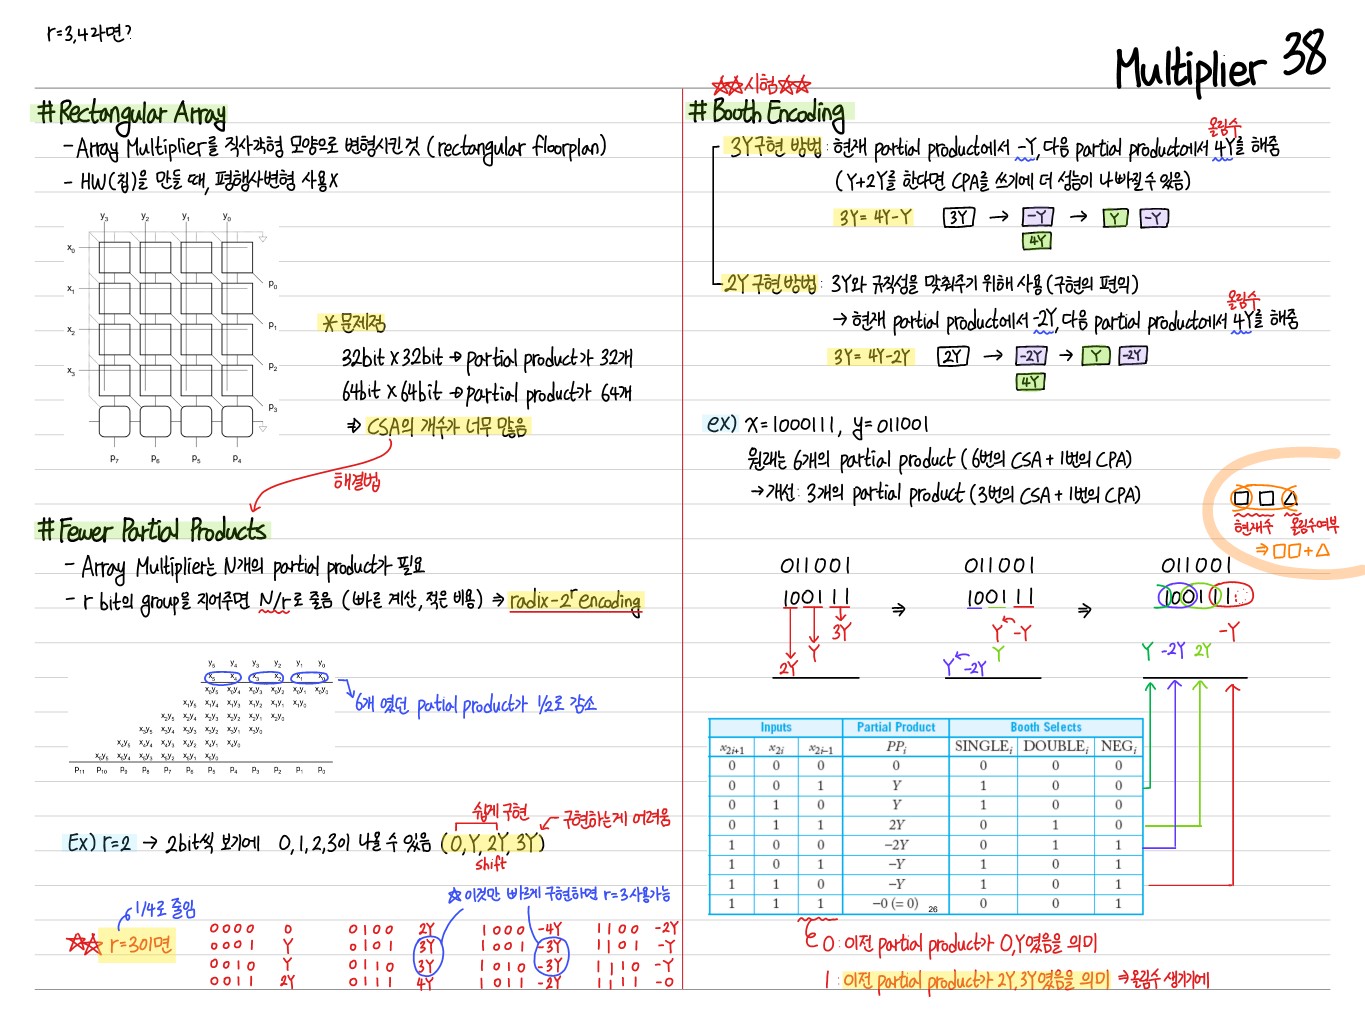 r=3,4라면?
Multiplier 38
# Rectangular Array
- Array Multiplier를 직사각형 모양으로 변형시킨 것 (rectangular floorplan)
- HW(칩)을 만들 때, 평행사변형 사용X
y3 y2 y1 y0
x0
p0
x1
p1
x2
p2
x3
p3
p7 p6 p5 p4
* 문제점
32bit X 32bit → partial product가 32개
64bit X 64bit → partial product가 64개
⇒ CSA의 개수가 너무 많음
해결법
# Fewer Partial Products
- Array Multiplier는 N개의 partial product가 필요
- r bit의 group을 지어주면 N/r로 줄음 (빠른 계산, 적은 비용) ⇒ radix-2^r encoding
y5 y4 y3 y2 y1 y0
x5 x4 x3 x2 x1 x0
x0y5 x0y4 x0y3 x0y2 x0y1 x0y0
x1y5 x1y4 x1y3 x1y2 x1y1 x1y0
x2y5 x2y4 x2y3 x2y2 x2y1 x2y0
x3y5 x3y4 x3y3 x3y2 x3y1 x3y0
x4y5 x4y4 x4y3 x4y2 x4y1 x4y0
x5y5 x5y4 x5y3 x5y2 x5y1 x5y0
p11 p10 p9 p8 p7 p6 p5 p4 p3 p2 p1 p0
6개 였던 patial product가 1/2로 감소
쉽게 구현
구현하는게 어려움
Ex) r=2 → 2bit씩 보기에 0,1,2,3이 나올 수 있음 (0,Y,2Y,3Y)
shift
☆이것만 빠르게 구현하면 r=3 사용가능
1/4로 줄임
☆☆ r=3이면
0000 0 0100 2Y 1000 -4Y 1100 -2Y
0001 Y 0101 3Y 1001 -3Y 1101 -Y
0010 Y 0110 3Y 1010 -3Y 1110 -Y
0011 2Y 0111 4Y 1011 -2Y 1111 -0
☆☆시험☆☆
# Booth Encoding
올림수
3Y구현 방법: 현재 partial product에서 -Y, 다음 partial product에서 4Y를 해줌
(Y+2Y를 한다면 CPA를 쓰기에 더 성능이 나빠질 수 있음)
3Y=4Y-Y 3Y → -Y → Y -Y
4Y
2Y 구현방법: 3Y와 규칙성을 맞춰주기 위해 사용 (구현의 편의)
올림수
→ 현재 partial product에서 -2Y, 다음 partial product에서 4Y를 해줌
3Y=4Y-2Y 2Y → -2Y → Y -2Y
4Y
ex) x=1000111, y=011001
원래는 6개의 partial product (6번의 CSA + 1번의 CPA)
→ 개선: 3개의 partial product (3번의 CSA + 1번의 CPA)
□ □ △
현재수 올림수여부
⇒ □□+△
011001 011001 011001
100111 ⇒ 100111 ⇒ 100111
3Y Y -Y -Y
Y Y Y -2Y 2Y
2Y Y -2Y
Inputs Partial Product Booth Selects
x2i+1 x2i x2i-1 PPi SINGLEi DOUBLEi NEGi
0 0 0 0 0 0 0
0 0 1 Y 1 0 0
0 1 0 Y 1 0 0
0 1 1 2Y 0 1 0
1 0 0 -2Y 0 1 1
1 0 1 -Y 1 0 1
1 1 0 -Y 1 0 1
1 1 1 -0 (= 0) 0 0 1
26
0: 이전 partial product가 0,Y였음을 의미
1: 이전 partial product가 2Y,3Y였음을 의미 ⇒ 올림수 생기기에